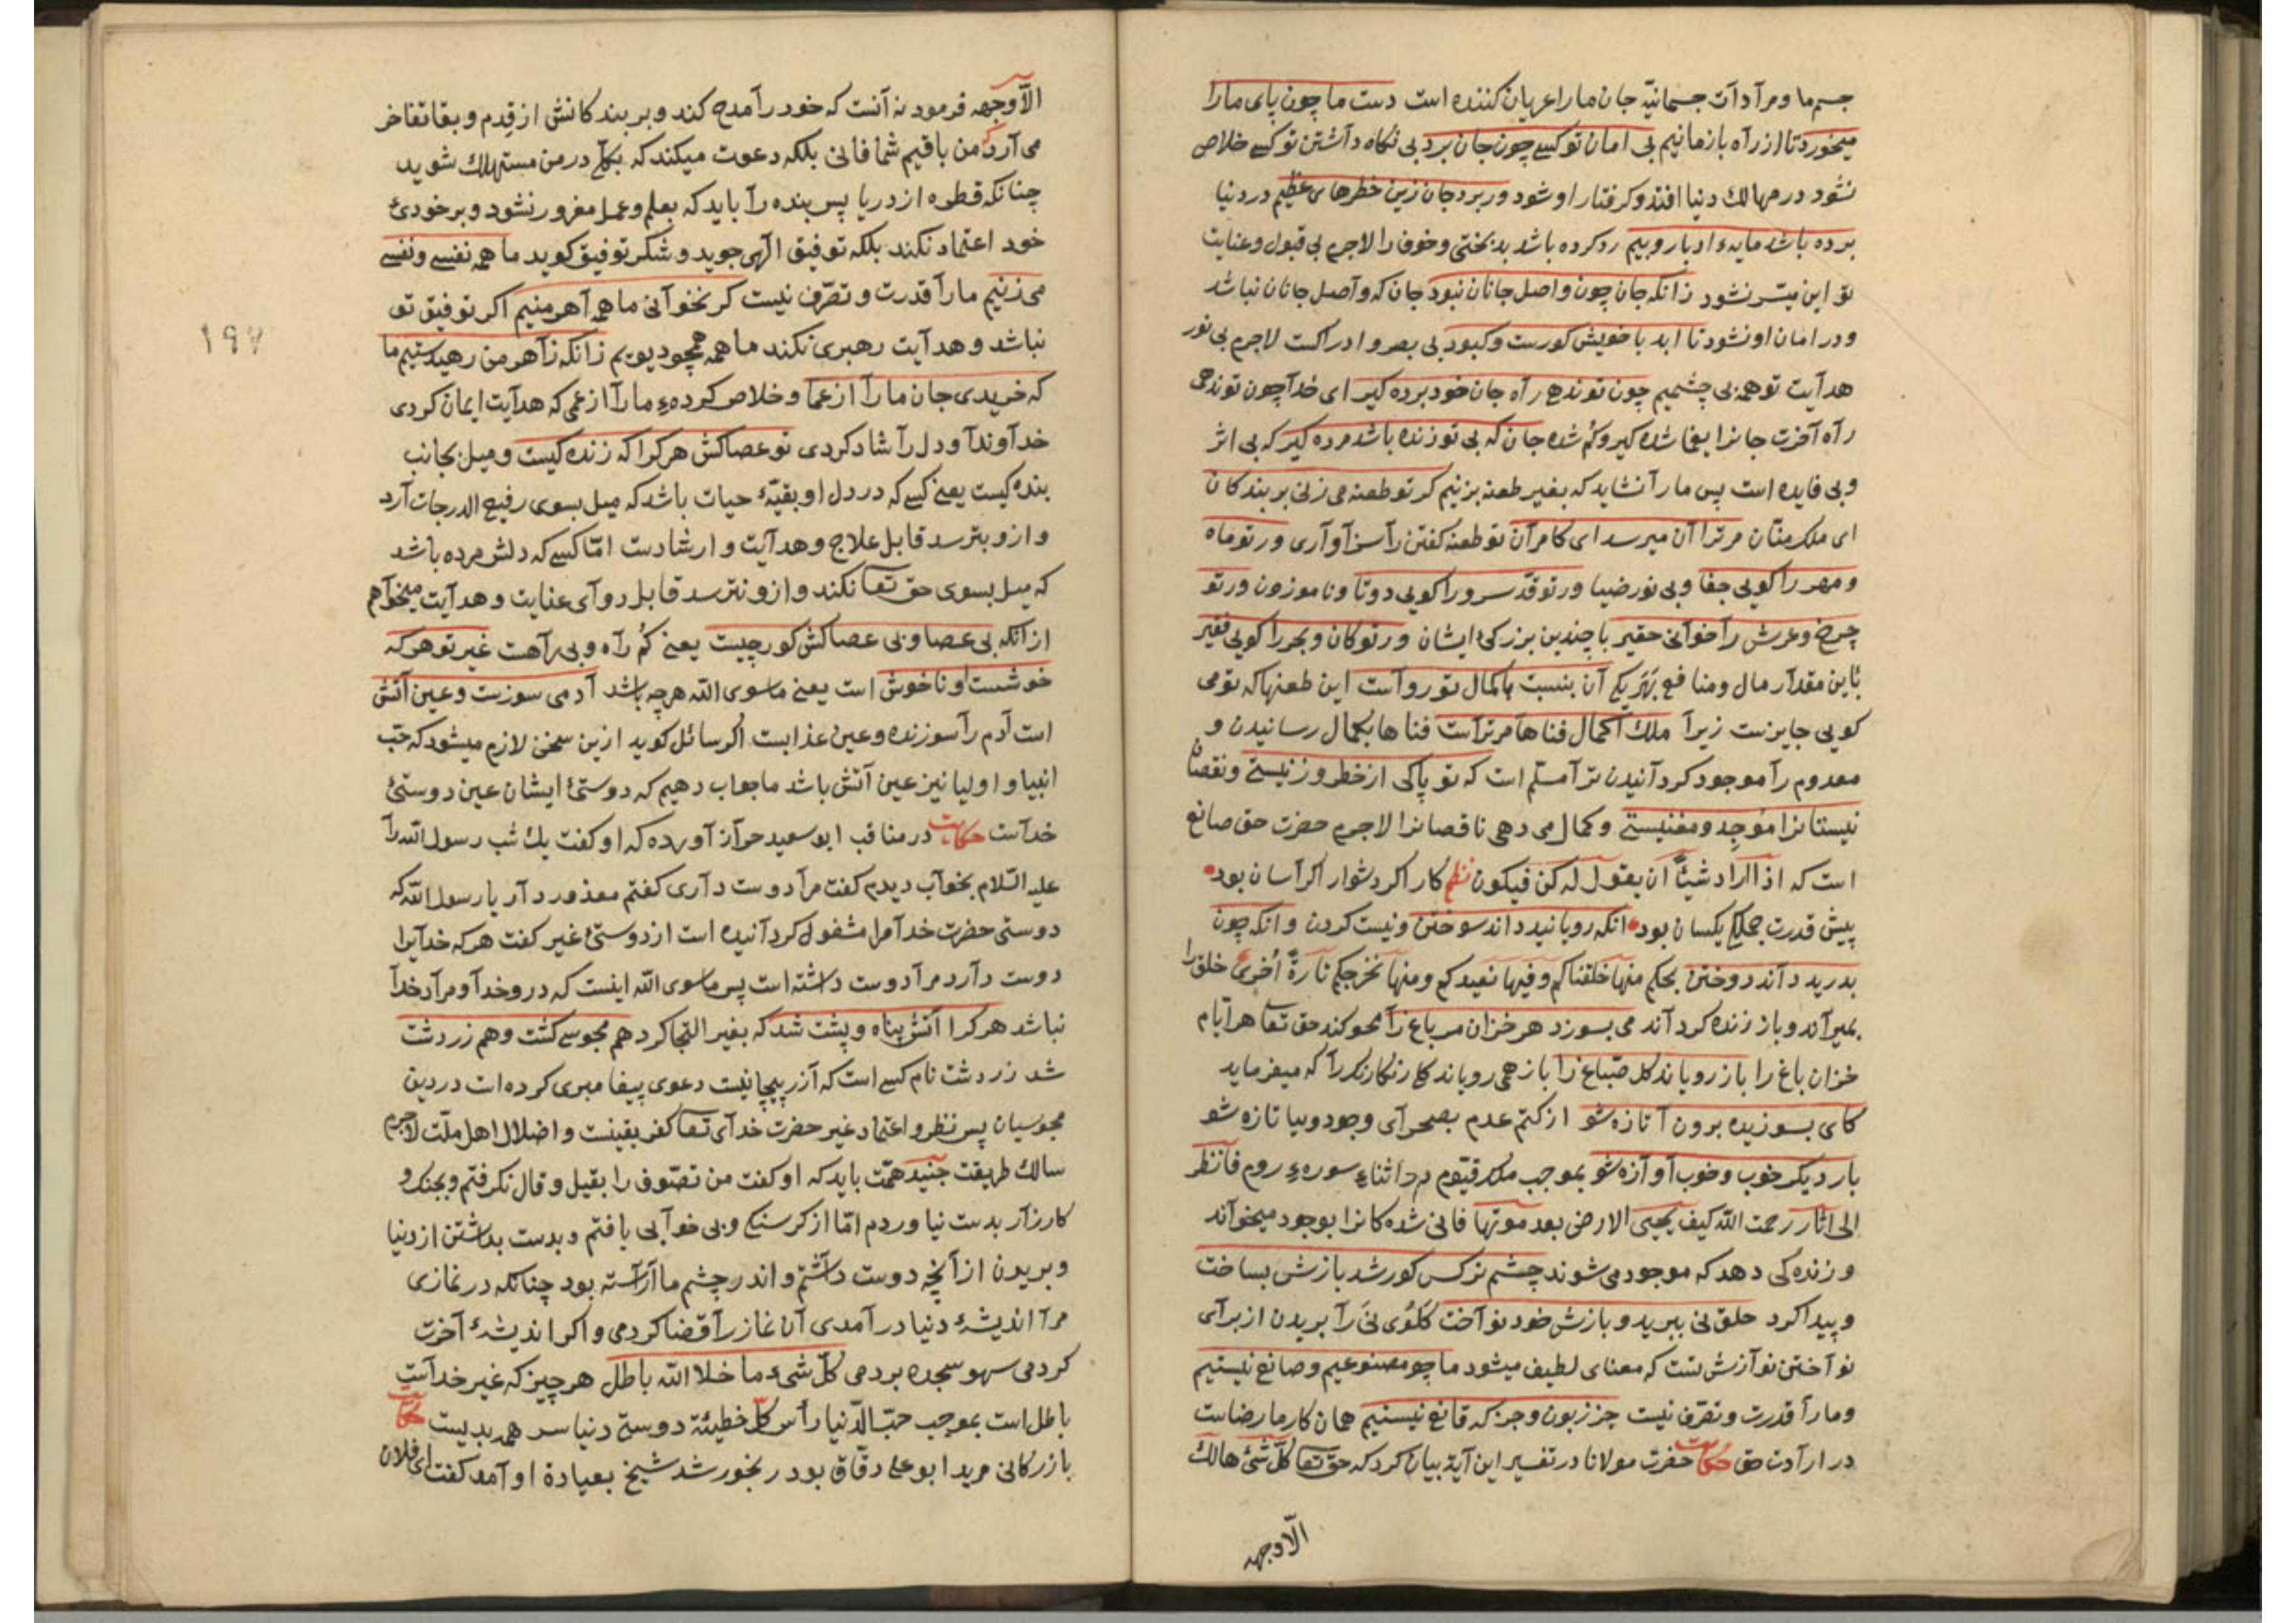 جسم ما و مرادات جسمانیّه جان ما را عریان کننده است دست ما چون پای ما را
میخورد تا از راه بازمانیم بی امان تو کسی چون جان برد بی نکاه داشتن تو کسی خلاص
نشود در مهالك دنیا افتد و کرفتار او شود ور برد جان زین خطرهای عظیم در دنیا
برده باشد مایهء ادبار و بیم رد کرده باشد بدبختی و خوف را لاجرم بی قبول و عنایت
تو این میسّر نشود زانکه جان چون واصل جانان نبود جان که واصل جانان نباشد
و در امان او نشود تا ابد با خویش کورست و کبود بی بصر و ادراکست لاجرم بی نور
هدایت تو همه بی چشمیم چون تو ندهی راه جان خود برده کیر ای خدا چون تو ندهی
راه آخرت جانرا بفنا شده کیر و کم شده جان که بی تو زنده باشد مرده کیر که بی اثر
و بی فایده است پس ما را نشاید که بغیر طعنه بزنیم کر تو طعنه می زنی بر بندکان
ای ملك منّان مر ترا آن میرسد ای کامران تو طعنه کفتن را سزاواری ور تو ماه
و مهر را کویی جفا و بی نور ضیا ور تو قدّ سرو را کویی دوتا و ناموزون ور تو
چرخ و عرش را خوانی حقیر با چندین بزرکئ ایشان ور تو کان و بحر را کویی فقیر
باین مقدار مال و منافع هر یکی آن بنسبت باکمال تو رواست این طعنها که تو می
کویی جایزست زیرا ملك اکمال فناها مر تراست فناها بکمال رسانیدن و
معدوم را موجود کردانیدن ترا مسلّم است که تو پاکی از خطر وز نیستی و نقصان
نیستانرا موجد و مغنیستی و کمال می دهی ناقصانرا لاجرم حضرت حق صانع
است که اذا اراد شیئاً ان یقول له کن فیکون نظم کار اکر دشوار اکر آسان بود
پیش قدرت جملکی یکسان بود انکه رویانید داند سوختن و نیست کردن و انکه چون
بدرید داند دوختن بحکم منها خلقناکم وفیها نعیدکم ومنها نخرجکم تارةً اخری خلق را
بمیراند و باز زنده کرداند می بسوزد هر خزان مر باغ را محو کند حق تعا هر ایام
خزان باغ را باز رویاند کل صبّاغ را باز همی رویاند کل رنکارنك را که میفرماید
کای بسوزیده برون آ تازه شو از کتم عدم بصحرای وجود و بیا تازه شو
بار دیکر خوب و خوب آوازه شو بموجب ملك قیّوم در اثناء سورهء روم فانظر
الی اثار رحمت الله کیف یحیی الارض بعد موتها فانی شده کانرا بوجود میخواند
و زنده کی دهد که موجود می شوند چشم نرکس کور شد بازش بساخت
و پیدا کرد حلق نی ببرید و بازش خود نواخت کلوی نی را بریدن از برای
نواختن نوازش تست که معنای لطیف میشود ما چو مصنوعیم و صانع نیستیم
و ما را قدرت و تصرّف نیست جز زبون و جز که قانع نیستیم همان کار ما رضاست
در ارادت حق حکایت حضرت مولانا در تفسیر این آیة بیان کرد که حق تعا کلّ شئ هالك
الّا وجهه
الّا وجهه فرمود نه آنست که خود را مدح کند و بر بندکانش از قِدم و بقا تفاخر
می آرد که من باقیم شما فانی بلکه دعوت میکند که بکلّی در من مستهلك شوید
چنانکه قطره از دریا پس بنده را باید که بعلم و عمل مغرور نشود و بر خودئ
خود اعتماد نکند بلکه توفیق الهی جوید و شکر توفیق کوید ما همه نفسی و نفسی
می زنیم ما را قدرت و تصرّف نیست کر نخوانی ما همه آهرمنیم اکر توفیق تو
نباشد و هدایت رهبری نکند ما همه همچو دیویم زانکه زاهرمن رهیدستیم ما
که خریدی جان ما را از عما و خلاص کردهء ما را از عمی که هدایت ایمان کردی
خداوندا و دل را شاد کردی تو عصاکش هر کرا که زنده کیست و میل بجانب
بنده کیست یعنی کسی که در دل او بقیّهٔ حیات باشد که میل بسوی رفیع الدرجات آرد
و ازو بترسد قابل علاج و هدایت و ارشادست امّا کسی که دلش مرده باشد
که میل بسوی حق تعا نکند و ازو نترسد قابل دوای عنایت و هدایت میخواهم
ازانکه بی عصا و بی عصاکش کور چیست یعنی کم راه و بی راهست غیر تو هر که
خوشست و ناخوش است یعنی ماسوی الله هر چه باشد آدمی سوزست و عین آتش
است آدم را سوزنده و عین عذابست اکر سائل کوید ازین سخن لازم میشود که حبّ
انبیا و اولیا نیز عین آتش باشد ما جواب دهیم که دوستئ ایشان عین دوستئ
خداست حکایت در مناقب ابو سعید خراز آورده که او کفت یك شب رسول الله را
علیه السّلام بخواب دیدم کفت مرا دوست داری کفتم معذور دار یا رسول الله که
دوستی حضرت خدا مرا مشغول کردانیده است از دوستئ غیر کفت هر که خدایرا
دوست دارد مرا دوست داشته است پس ماسوی الله اینست که درو خدا و مراد خدا
نباشد هر کرا آتش پناه و پشت شد که بغیر التجا کرد هم مجوسی کشت و هم زردشت
شد زردشت نام کسی است که دعوی پیغامبری کرده است در دین
مجوسیان پس نظر و اعتماد غیر حضرت خدای تعا کفر یقینست و اضلال اهل ملّت لاجرم
سالك طریقت جنید همّت باید که او کفت من تصوّف را بقیل و قال نکرفتم و بجنك و
کارزار بدست نیاوردم امّا از کرسنکی و بی خوابی یافتم و بدست بداشتن از دنیا
و بریدن از آنچه دوست داشتم و اندر چشم ما آراسته بود چنانکه در نمازی
مرا اندیشهٔ دنیا درآمدی آن نماز را قضا کردمی و اکر اندیشهٔ آخرت
کردمی سهو سجده بردمی کلّ شیء ما خلا الله باطل هر چیز که غیر خداست
باطل است بموجب حبّ الدّنیا رأس کلّ خطیئة دوستی دنیا سر همه بدیست حکایت
بازرکانی مرید ابو علی دقاق بود رنجور شد شیخ بعیادة او آمد کفت ای فلان
۱۹۷